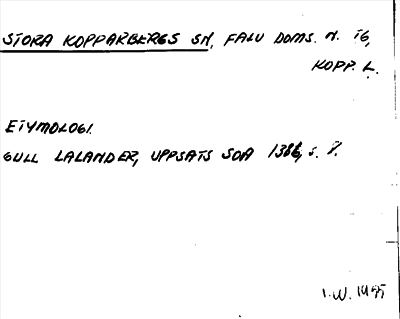 STORA KOPPARBERGS SN, FALU DOMS. N. TG,
KOPP. L.
ETYMOLOGI.
GULL LALANDER, UPPSATS SOA 1386, s. 8.
I.W. 1955